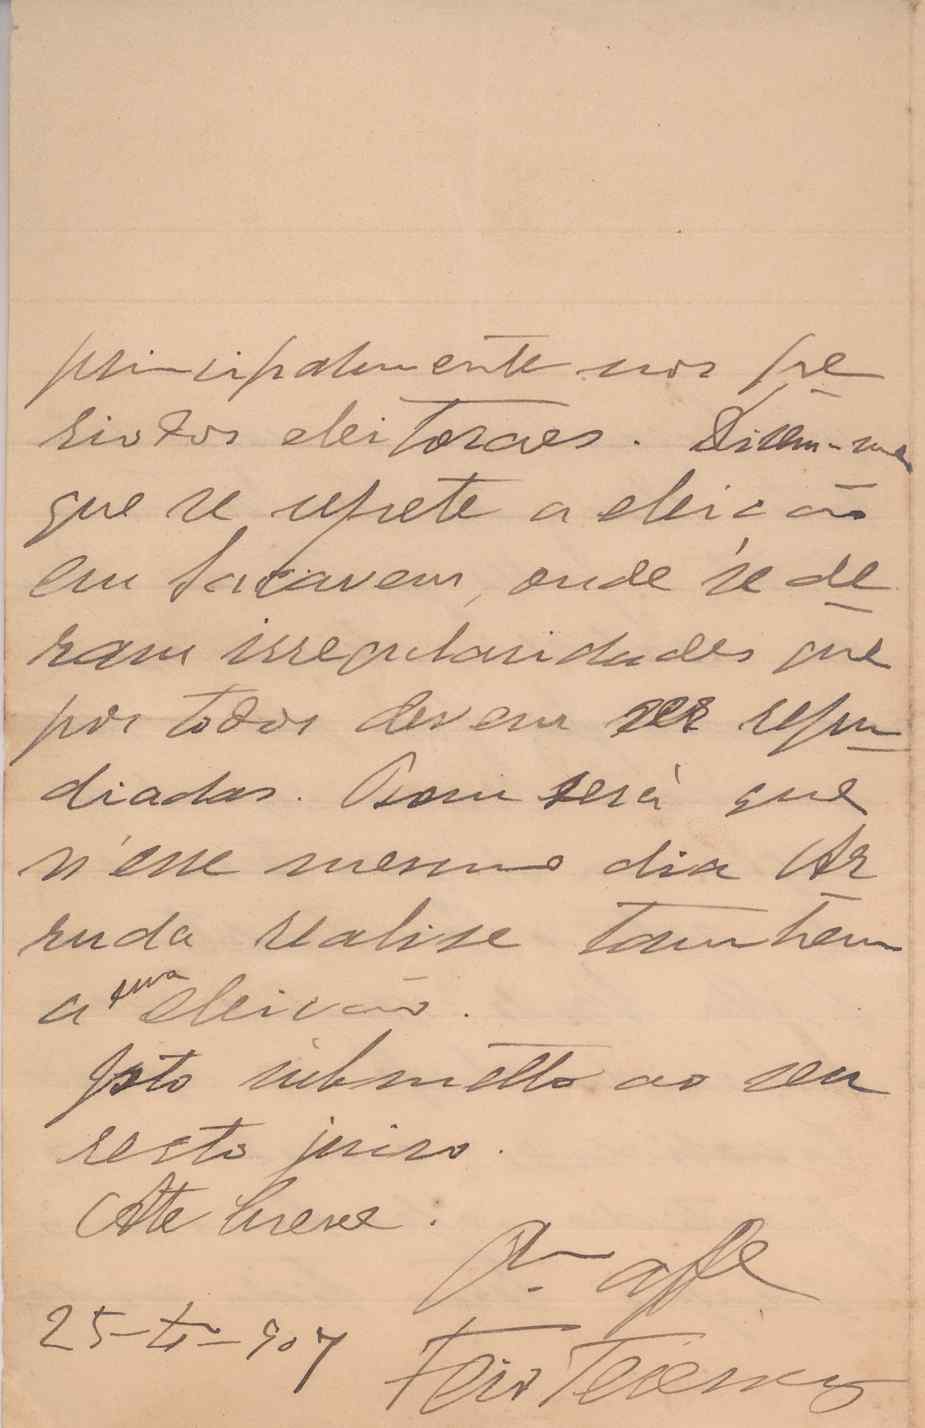 principalmente nos pe
riodos eleitoraes. Dizem-me
que se repete a eleição
em Sacavem, onde se de
ram irregularidades que
por todos devem ser repu
diadas. Bom será que
n'esse mesmo dia Ar
ruda realise tambem
a sua eleição.
Isto submetto ao seu
recto juizo.
Até breve.
affe
25- -907
Feio Terenas